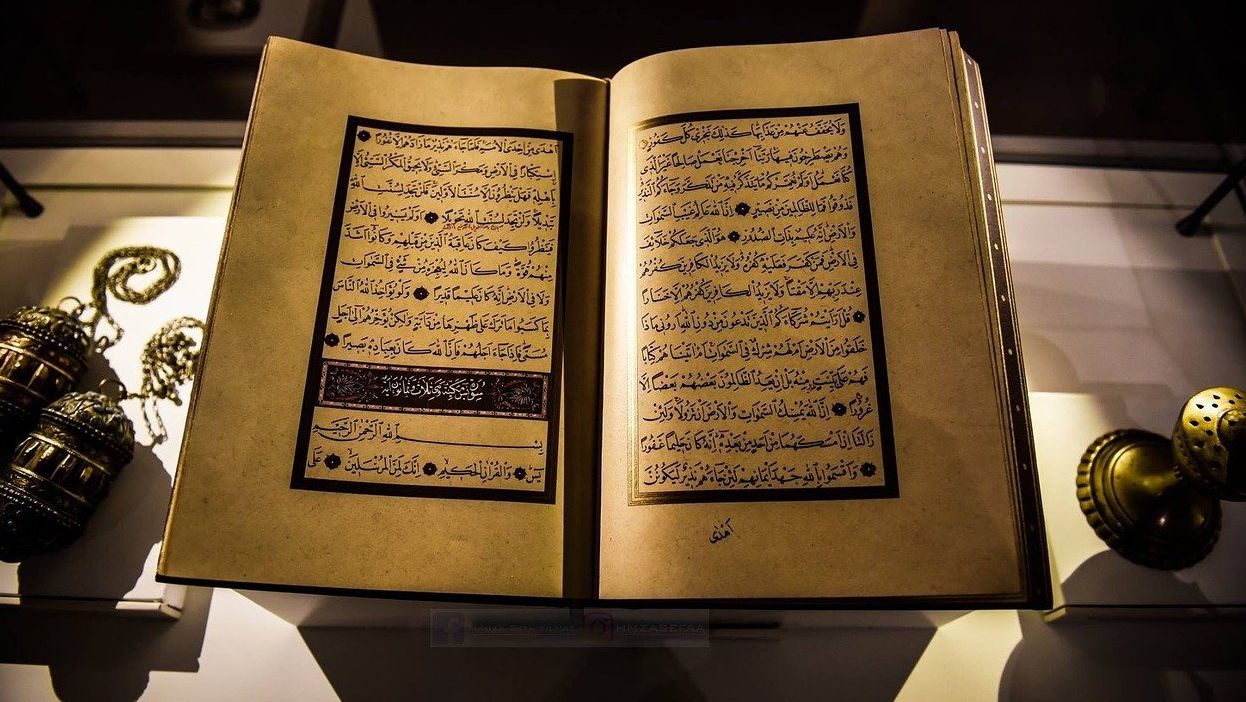 وَلَا يُخَفَّفُ عَنْهُمْ مِنْ عَذَابِهَا كَذٰلِكَ نَجْزِي كُلَّ كَفُورٍ
وَهُمْ يَصْطَرِخُونَ فِيهَا رَبَّنَا اَخْرِجْنَا نَعْمَلْ صَالِحًا غَيْرَ الَّذِي
كُنَّا نَعْمَلُ اَوَلَمْ نُعَمِّرْكُمْ مَا يَتَذَكَّرُ فِيهِ مَنْ تَذَكَّرَ وَجَاءَكُمُ النَّذِيرُ
فَذُوقُوا فَمَا لِلظَّالِمِينَ مِنْ نَصِيرٍ اِنَّ اللّٰهَ عَالِمُ غَيْبِ السَّمٰوَاتِ
وَالْاَرْضِ اِنَّهُ عَلِيمٌ بِذَاتِ الصُّدُورِ هُوَ الَّذِي جَعَلَكُمْ خَلَائِفَ
فِي الْاَرْضِ فَمَنْ كَفَرَ فَعَلَيْهِ كُفْرُهُ وَلَا يَزِيدُ الْكَافِرِينَ كُفْرُهُمْ
عِنْدَ رَبِّهِمْ اِلَّا مَقْتًا وَلَا يَزِيدُ الْكَافِرِينَ كُفْرُهُمْ اِلَّا خَسَارًا
قُلْ اَرَاَيْتُمْ شُرَكَاءَكُمُ الَّذِينَ تَدْعُونَ مِنْ دُونِ اللّٰهِ اَرُونِي مَاذَا
خَلَقُوا مِنَ الْاَرْضِ اَمْ لَهُمْ شِرْكٌ فِي السَّمٰوَاتِ اَمْ اٰتَيْنَاهُمْ كِتَابًا
فَهُمْ عَلٰى بَيِّنَتٍ مِنْهُ بَلْ اِنْ يَعِدُ الظَّالِمُونَ بَعْضُهُمْ بَعْضًا اِلَّا
غُرُورًا اِنَّ اللّٰهَ يُمْسِكُ السَّمٰوَاتِ وَالْاَرْضَ اَنْ تَزُولَا وَلَئِنْ
زَالَتَا اِنْ اَمْسَكَهُمَا مِنْ اَحَدٍ مِنْ بَعْدِهِ اِنَّهُ كَانَ حَلِيمًا غَفُورًا
وَاَقْسَمُوا بِاللّٰهِ جَهْدَ اَيْمَانِهِمْ لَئِنْ جَاءَهُمْ نَذِيرٌ لَيَكُونُنَّ
اَهْدٰى
اَهْدٰى مِنْ اِحْدَى الْاُمَمِ فَلَمَّا جَاءَهُمْ نَذِيرٌ مَا زَادَهُمْ اِلَّا نُفُورًا
اِسْتِكْبَارًا فِي الْاَرْضِ وَمَكْرَ السَّيِّئِ وَلَا يَحِيقُ الْمَكْرُ السَّيِّئُ اِلَّا
بِاَهْلِهِ فَهَلْ يَنْظُرُونَ اِلَّا سُنَّتَ الْاَوَّلِينَ فَلَنْ تَجِدَ لِسُنَّتِ اللّٰهِ
تَبْدِيلًا وَلَنْ تَجِدَ لِسُنَّتِ اللّٰهِ تَحْوِيلًا اَوَلَمْ يَسِيرُوا فِي الْاَرْضِ
فَيَنْظُرُوا كَيْفَ كَانَ عَاقِبَةُ الَّذِينَ مِنْ قَبْلِهِمْ وَكَانُوا اَشَدَّ
مِنْهُمْ قُوَّةً وَمَا كَانَ اللّٰهُ لِيُعْجِزَهُ مِنْ شَيْءٍ فِي السَّمٰوَاتِ
وَلَا فِي الْاَرْضِ اِنَّهُ كَانَ عَلِيمًا قَدِيرًا وَلَوْ يُؤَاخِذُ اللّٰهُ النَّاسَ
بِمَا كَسَبُوا مَا تَرَكَ عَلٰى ظَهْرِهَا مِنْ دَابَّةٍ وَلٰكِنْ يُؤَخِّرُهُمْ اِلٰى اَجَلٍ
مُسَمًّى فَاِذَا جَاءَ اَجَلُهُمْ فَاِنَّ اللّٰهَ كَانَ بِعِبَادِهِ بَصِيرًا
بِسْمِ اللّٰهِ الرَّحْمٰنِ الرَّحِيمِ
يٰسٓ وَالْقُرْاٰنِ الْحَكِيمِ اِنَّكَ لَمِنَ الْمُرْسَلِينَ عَلٰى
HMZASEFAA